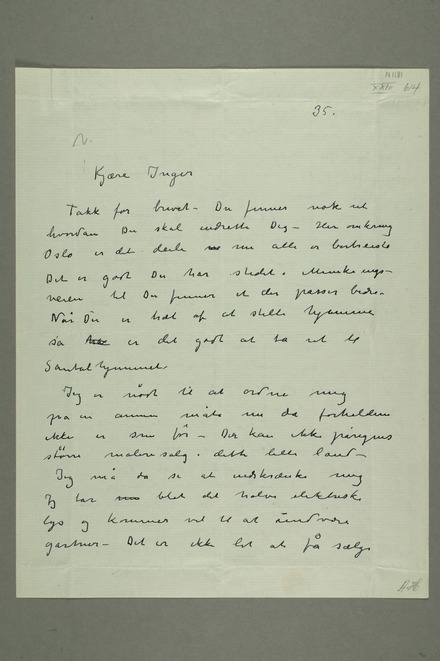 N 1181
XXIV 64
35.
N.
Kjære Inger
Takk for brevet – Du finner nok ut
hvordan Du skal indrette Dig – Her omkring
Oslo er det deile nu alle er bortreiste
Det er godt Du har stedet i
veien til Du finner et der passer bedre.
Når Du er træt af at stelle hjemme
så er det godt at ta ut te
Santalhjemmet
Jeg er nødt til at ordne mig
på en annen måte nu da forholdene
ikke er som før – Der kan ikke påregnes
større malerisalg i dette lille land –
Jeg må da se at indskrænke mig
Jeg har blot det halve elektriske
lys og kommer vel til at undvære
gartner – Det er ikke let at få sælge